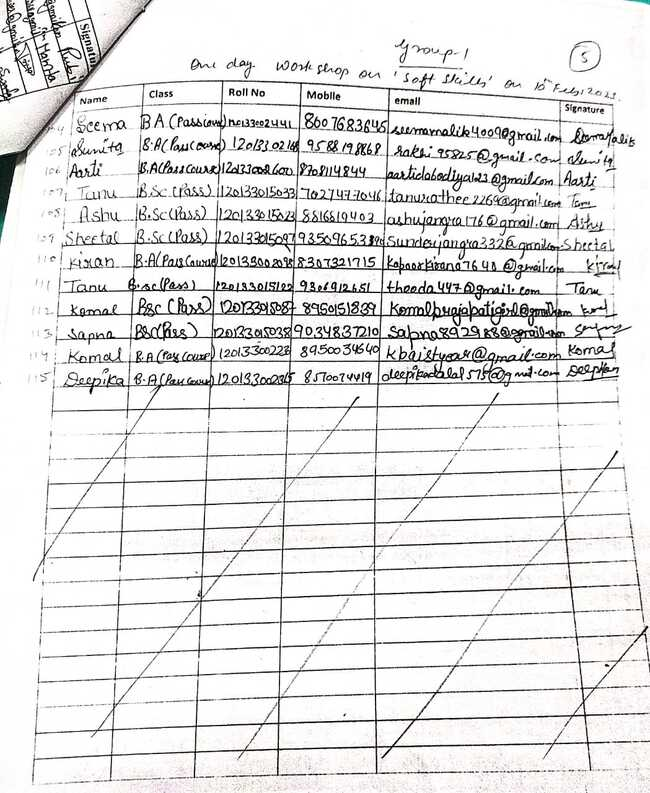 Signature
Group-1
5
One day workshop on 'Soft Skills' on 10 Feb, 2023.
Name Class Roll No Mobile email Signature
Seema B A (Pass course) 8607683645 seemamalik4009@gmail.com Seema Malik
105 Sunita B.A (Pass course) 9588198868 rakhi95825@gmail.com Sunita
106 Aarti B.A (Pass Course) 120133002600 8708114844 aartidabodiya123@gmail.com Aarti
107 Tanu B.Sc (Pass) 120133015033 7027477046 tanurathee2269@gmail.com Tanu
108 Ashu B.Sc (Pass) 120133015023 8816819403 ashujangra176@gmail.com Ashu
109 Sheetal B.Sc (Pass) 120133015097 sunderjangra332@gmail.com Sheetal
110 Kiran B.A (Pass Course) 120133002098 8307321715 kapoorkirana7640@gmail.com Kiran
111 Tanu B.sc (Pass) 120133015122 9306912651 thooda447@gmail.com Tanu
112 Komal BSc (Pass) 120133015087 8950151839 Komalprajapatigirl@gmail.com Komal
113 Sapna BSc(Pass) 120133015038 9034837210 sapna892988@gmail.com
114 Komal B.A (Pass Course) 8950034640 kbaistyear@gmail.com Komal
115 Deepika B.A (Pass Course) 8570074419 deepikadalal575@gmail.com Deepika